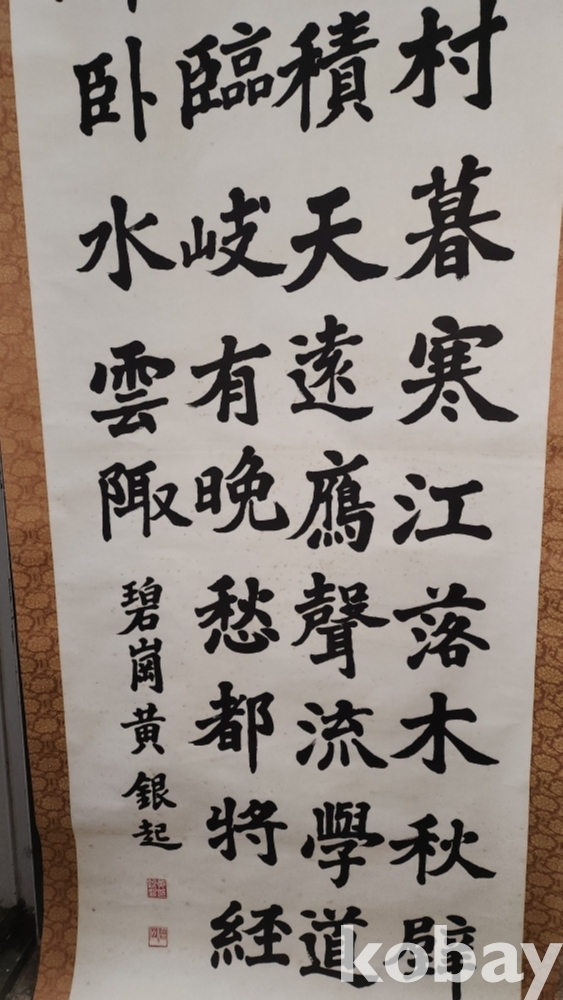 村暮寒江落木秋
積天遠鴈聲流學道
臨岐有晚愁都將経
卧水雲陬
碧崗黄銀起
kobay